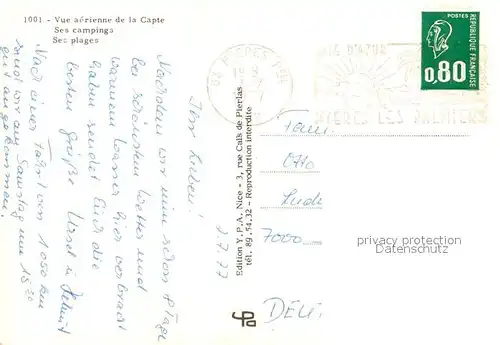 1001 - Vue aérienne de la Capte
Ses campings
Ses plages
Ihr Lieben!
7.77
Nachdem wir nun schon 8 Tage
bei schönstem Wetter und
warmem Wasser hier verbracht
haben sendet Euch die
besten Grüße
Nach einer Fahrt von 1050 km
sind wir am Samstag um 15
gut angekommen.
Edition Y.P.A. Nice - 3, rue Caïs de Pierlas
tél. 89.54.32 - Reproduction interdite
YPA
83 HYERES PPAL
D'AZUR
HYERES LES PALMIERS
REPUBLIQUE FRANÇAISE
0,80
Fam.
Otto
7000
privacy protection
DEU